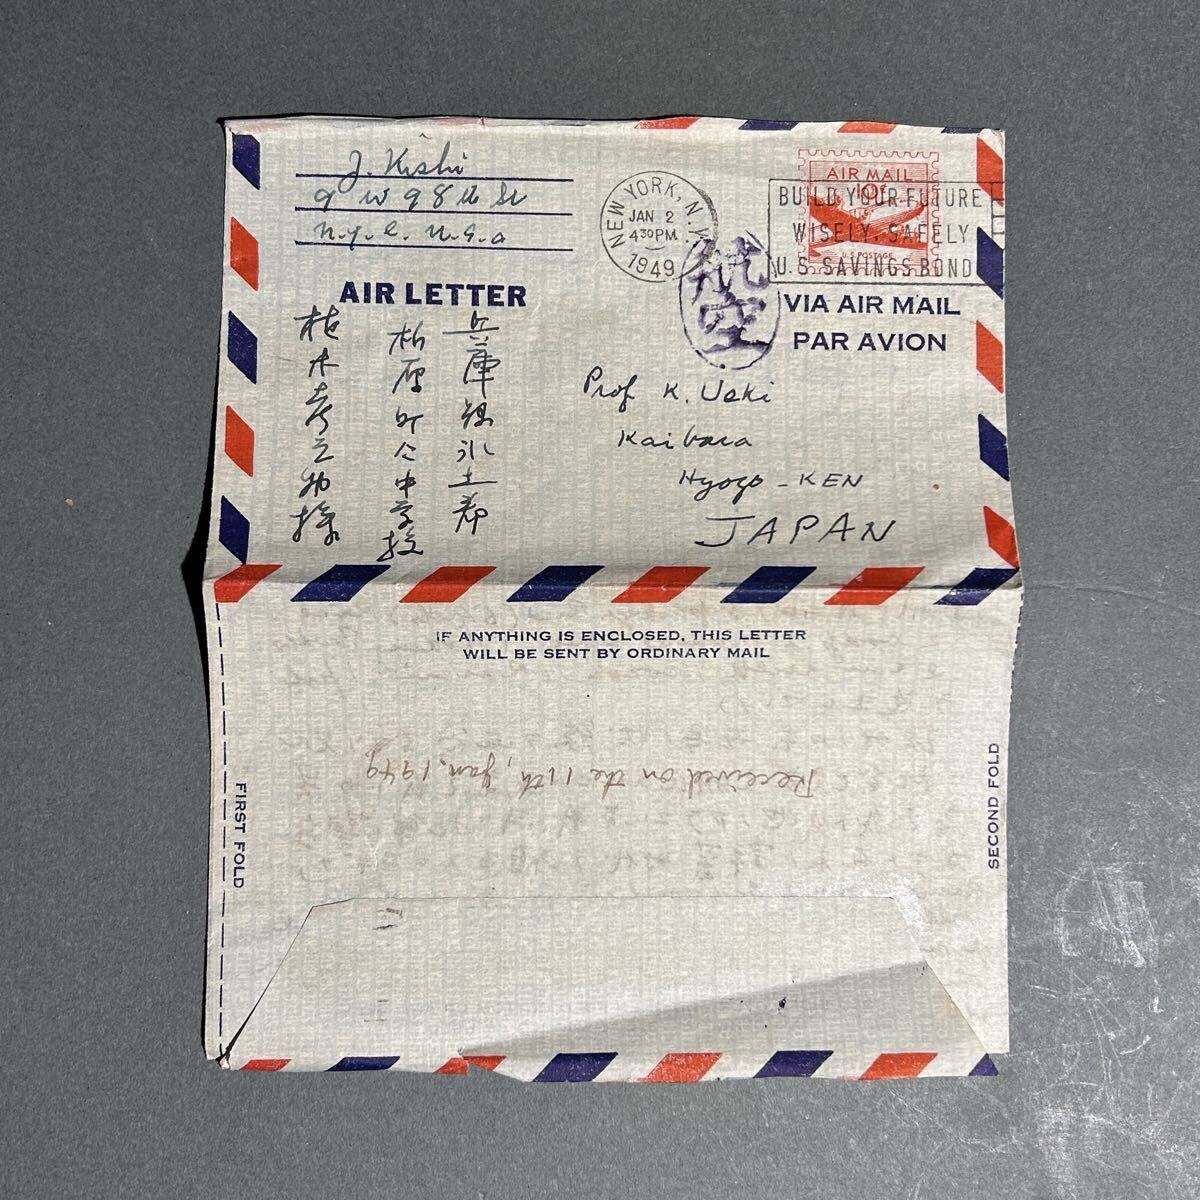 J. Kishi
9 W 98th St
N.Y.C. U.S.A
NEW YORK, N.Y.
JAN 2
4 30 PM
1949
AIR MAIL
10¢
U.S. POSTAGE
BUILD YOUR FUTURE
WISELY, SAFELY
U.S. SAVINGS BOND
航空
AIR LETTER
VIA AIR MAIL
PAR AVION
兵庫縣氷上郡
柏原町仁中学校
植木孝之助様
Prof K. Ueki
Kaibara
Hyogo-KEN
JAPAN
IF ANYTHING IS ENCLOSED, THIS LETTER
WILL BE SENT BY ORDINARY MAIL
Received on the 11th, Jan. 1949
FIRST FOLD
SECOND FOLD